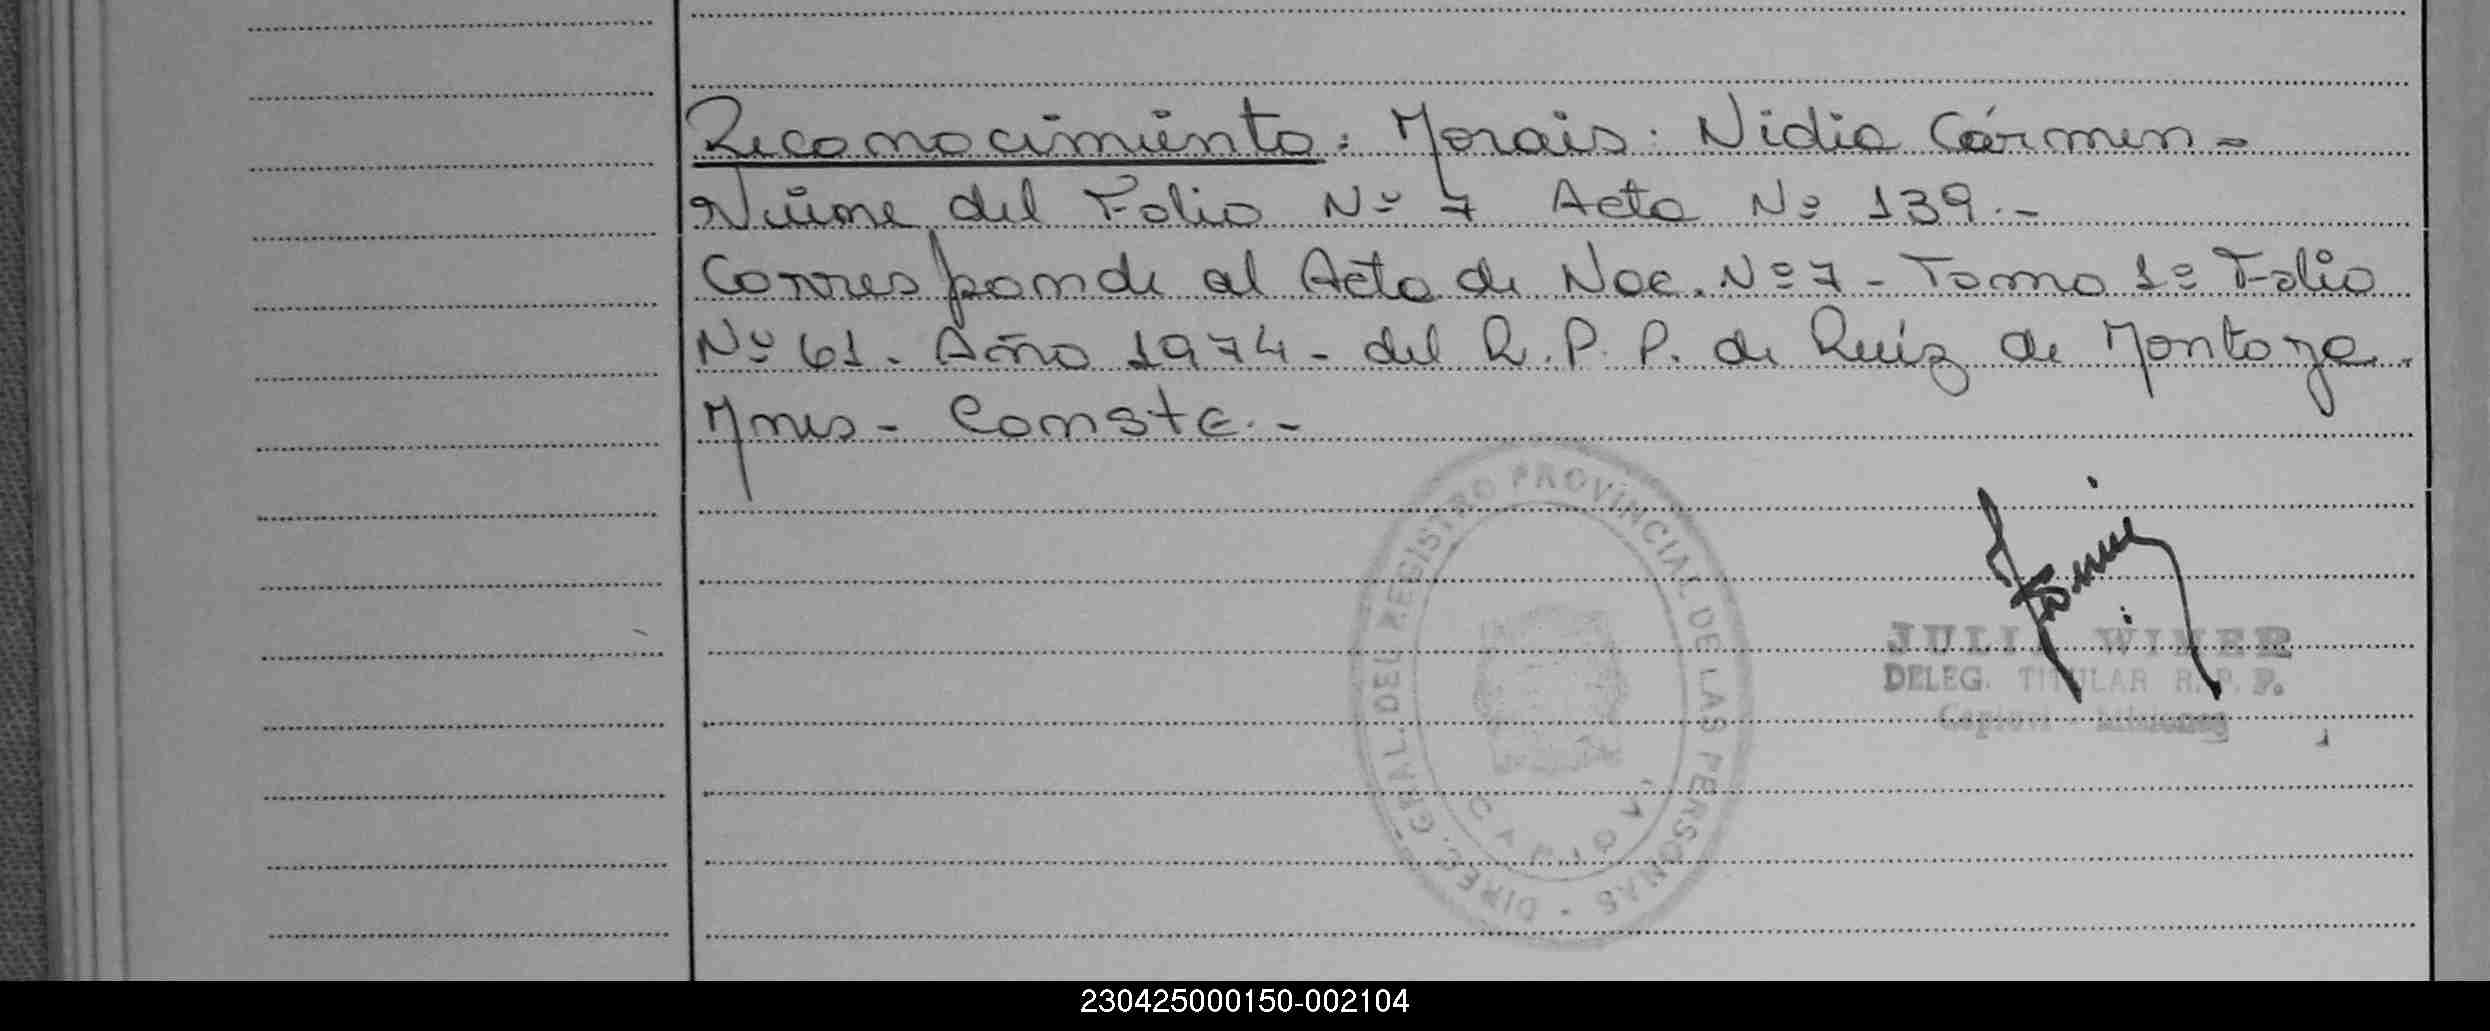 Reconocimiento: Morais: Nidia Cármen -
Viene del Folio Nº 7 Acta Nº 139.-
Corresponde al Acta de Nac. Nº 7 - Tomo 1º Folio
Nº 61. Año 1974 - del R. P. P. de Ruíz de Montoya.
Mnes - Conste.-
DIREC. GRAL. DEL REGISTRO PROVINCIAL DE LAS PERSONAS -
CAPIOVÍ
JULIA WINER
DELEG. TITULAR R. P. P.
Capioví - Misiones
230425000150-002104